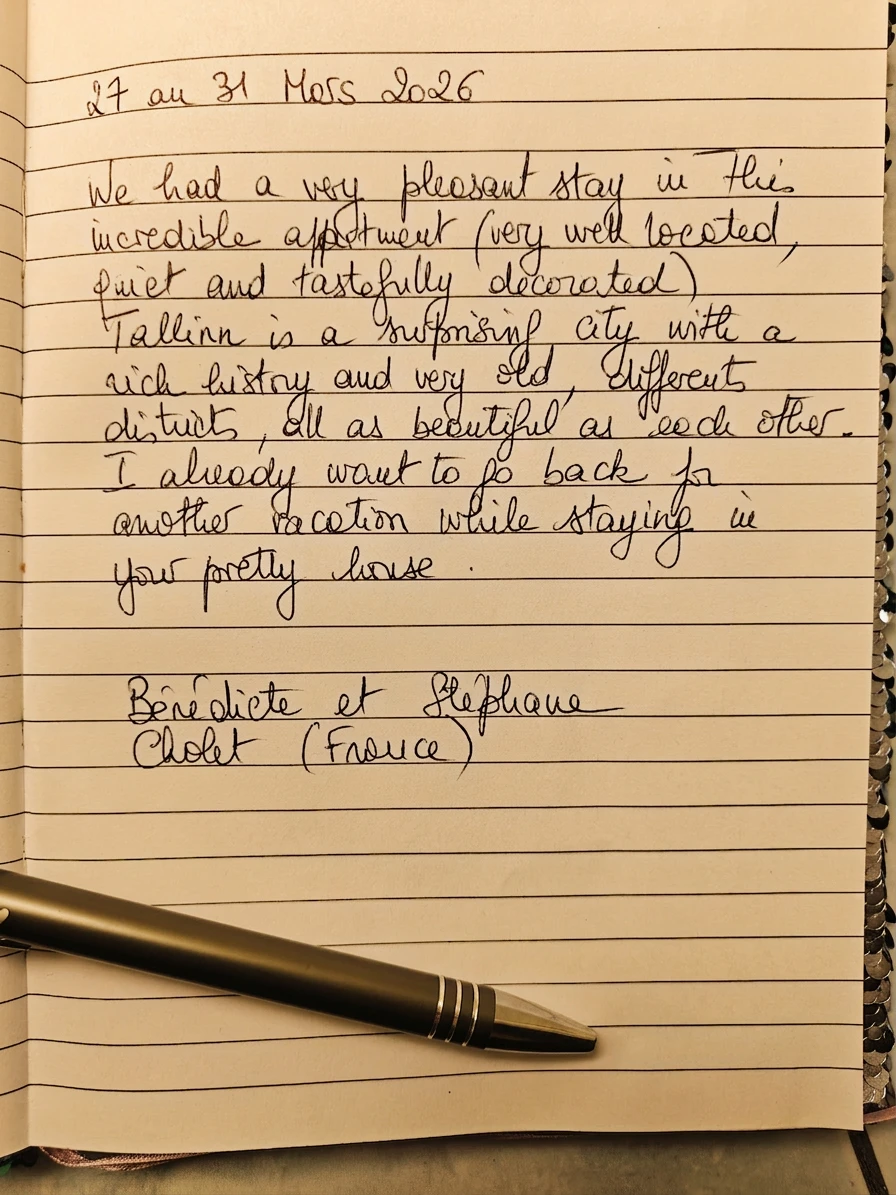 27 au 31 Mars 2026
We had a very pleasant stay in this
incredible appartment (very well located,
quiet and tastefully decorated)
Tallinn is a surprising city with a
rich history and very old, differents
districts, all as beautiful as each other.
I already want to go back for
another vacation while staying in
your pretty house.
Bénédicte et Stéphane
Cholet (France)